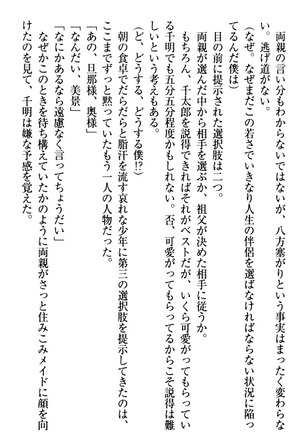 両親の言い分もわからないではないが、八方塞がりという事実は変わらな
い。逃げ道がない。
(なぜ。なぜまだこの若さでいきなり人生の伴侶を選ばなければならない状況に陥っ
てるんだ僕は)
目の前に提示された選択肢は二つ。
両親が選んだ中から相手を選ぶか、祖父が決めた相手に従うか。
もちろん、千太郎を説得できればそれがベストだが、いくら可愛がってもらってい
る千明でも五分五分程度かもしれない。否、可愛がってもらってるからこそ説得は難
しいという考えもある。
(ど、どうする、どうする僕!?)
朝の食卓でだらだらと脂汗を流す哀れな少年に第三の選択肢を提示してきたのは、
ここまでずっと黙っていたもう一人の人物だった。
「あの、旦那様、奥様」
「なんだい、美景」
「なにかあるなら遠慮なく言ってちょうだい」
なぜかこのときを待ち構えていたかのように両親がさっと住みこみメイドに顔を向
けたのを見て、千明は嫌な予感を覚えた。